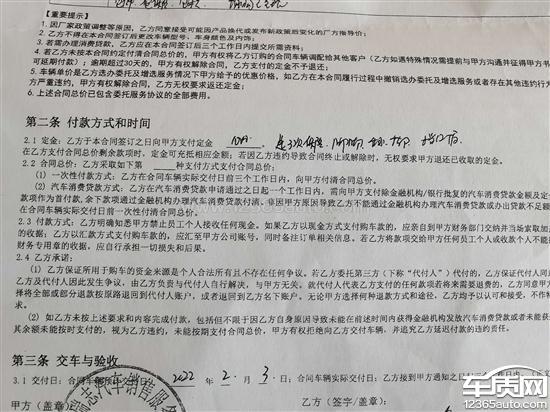 【重要提示】
1. 因厂家政策调整等原因，乙方同意接受可能因产品换代或发布新政策后变化的厂方指导价；
2. 乙方不得在本合同签订后更改车辆型号、车身颜色及内饰；
3. 若需办理消费贷款，乙方应在本合同签订后三个工作日内提交所需资料；
4. 若乙方未按本合同约定付清合同总价，甲方有权将乙方订购的合同车辆配给其他客户（乙方如遇特殊情况需提前与甲方沟通并征得甲方书
可延期付款）；逾期超过30天的，甲方有权解除合同，乙方支付的定金不予退还；
5. 车辆单价是乙方选办委托及增选服务情况下甲方给予的优惠价格，如乙方在本合同履行过程中撤销选办委托及增选服务或者存在其他违约行为
方严重违约，甲方有权解除合同，乙方无权要求返还定金；
6. 上述合同总价已包含委托服务协议的全部费用。
第二条 付款方式和时间
2.1 定金：乙方于本合同签订之日向甲方支付定金
在乙方支付合同总价剩余款项时，定金可充抵相应金额；若因乙方违约导致合同终止或解除时，无权要求甲方退还已收取的定金。
2.2 合同总价：乙方采取如下第 种支付方式向甲方支付合同总价：
（1）一次性付款方式：乙方在合同车辆实际交付日前三个工作日内，向甲方付清合同总价。
（2）汽车消费贷款方式：乙方在汽车消费贷款申请通过之日起一个工作日内，需向甲方支付除金融机构/银行批复的汽车消费贷款金额及定金
款项作为首付款，余下款项通过金融机构办理汽车消费贷款付清，非因甲方原因导致乙方不能通过金融机构办理汽车消费贷款或办出贷款不足额
在合同车辆实际交付日前一次性付清合同总价。
2.3 付款方式：乙方明确知悉甲方禁止员工个人接收任何现金。如果乙方以现金方式支付购车款的，应亲自到甲方财务部门交纳并当场索取加
的收据；以乙方以汇款方式支付购车款的，应汇至甲方公司账号，同时备注订单相关信息。若乙方将款项交给甲方任何员工个人或收款人个人不能
财务专用章的收据，应自行承担一切损失和后果。
2.4 乙方承诺：
（1）乙方保证所用于购车的资金来源是个人合法所有且不存在任何争议。若乙方委托第三方（下称“代付人”）代付的，乙方保证代付人同
乙方及代付人因此发生争议，由乙方负责与代付人自行解决，与甲方无关。就代付人代乙方支付的任何款项若将来需要退费的，乙方同意甲方
择将全部或部分退款按原路退回到代付人账户，或者退回到乙方名下账户。无论甲方选择何种退款方式和途径，乙方均予以认可和接受，不作
求。
（2）如乙方未按上述要求和内容完成付款，包括但不限于因乙方自身原因导致未能在前述时间内获得金融机构发放汽车消费贷款或者未能获
其余额未能按时支付，视为乙方违约，未能按期支付合同总价，甲方有权拒绝向乙方交付车辆，并追究乙方延迟付款的违约责任。
第三条 交车与验收
3.1 交付日：合同车辆预计交付日 2022 年 2 月 3 日；合同车辆实际交付日：乙方接到甲方通知之日起
汽车销售服务
乙方（签字/盖章）：
车质网
12365auto.com
www.12365auto.com